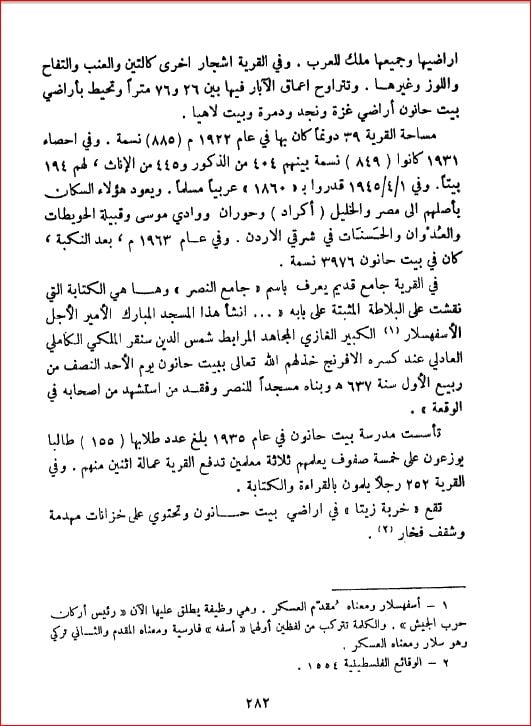 اراضيها وجميعها ملك للعرب . وفي القرية اشجار اخرى كالتين والعنب والتفاح
واللوز وغيرهـا . وتتراوح اعماق الآبار فيها بين ٢٦ و٧٦ متراً وتحيط بأراضي
بيت حانون أراضي غزة ونجد ودمرة وبيت لاهيا .
مساحة القرية ٣٩ دونماً كان بها في عام ١٩٢٢ م (٨٨٥) نسمة . وفي احصاء
١٩٣١ كانوا ( ٨٤٩ ) نسمة بينهم ٤٠٤ من الذكور و٤٤٥ من الإناث ، لهم ١٩٤
بيتاً. وفي ١٩٤٥/٤/١ قدروا بـ « ١٨٦٠ » عربياً مسلماً . ويعود هؤلاء السكان
بأصلهم الى مصر والخليل ( أكراد ) وحوران ووادي موسى وقبيلة الحويطات
والعُدْوان والحَسَنَات في شرقي الاردن . وفي عـام ١٩٦٣ م ، بعد النكبة ،
كان في بيت حانون ٣٩٧٦ نسمة .
في القرية جامع قديم يعرف باسم « جامع النصر » وهـا هي الكتابة التي
نقشت على البلاطة المثبتة على بابه « ... انشأ هذا المسجد المبارك الأمير الأجل
الأسفهسلار (١) الكبير الغازي المجاهد المرابط شمس الدين سنقر الملكي الكاملي
العادلي عند كسره الافرنج خذلهم الله تعالى ببيت حانون يوم الأحد النصف من
ربيع الأول سنة ٦٣٧ ه وبناه مسجداً للنصر وفقـد من استشهد من اصحابه في
الوقعة » .
تأسست مدرسة بيت حانون في عام ١٩٣٥ بلغ عدد طلابها ( ١٥٥ ) طالبا
يوزعون على خمسة صفوف يعلمهم ثلاثة معلمين تدفع القرية عمالة اثنين منهم . وفي
القرية ٢٥٢ رجلاً يلمون بالقراءة والكتابة .
تقع « خربة زيتا » في اراضي بيت حـانون وتحتوي على خزانات مهدمة
وشقف فخار (٢) .
١ – أسفهسلار ومعناه مُقدّم العسكر . وهي وظيفة يطلق عليها الآن « رئيس أركان
حرب الجيش » . والكلمة تتركب من لفظين أولهما « أسفه » فارسية ومعناه المقدم والثـاني تركي
وهو سلار ومعناه العسكر .
٢ – الوقائع الفلسطينية ١٥٥٤ .
٢٨٢